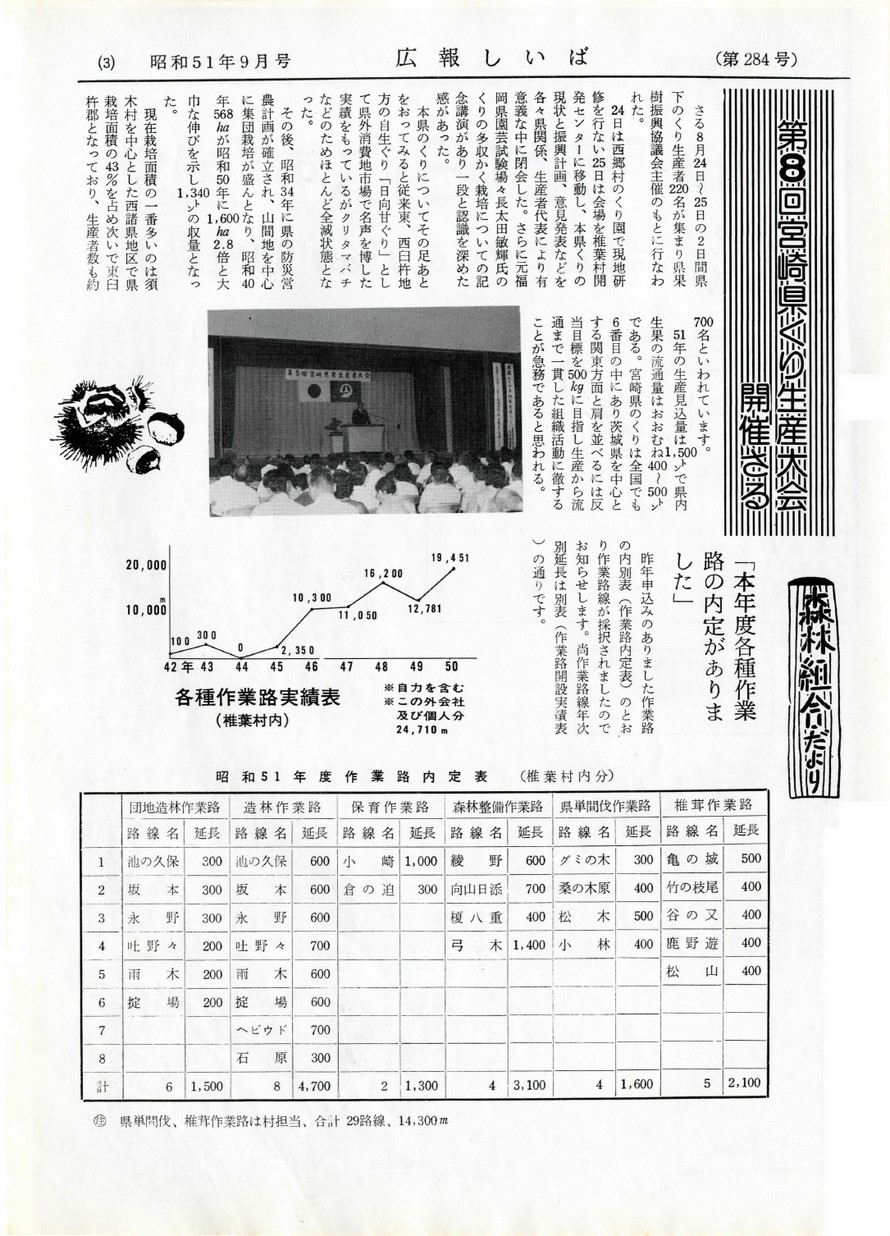 (3)　昭和51年9月号
広報しいば
（第284号）
第8回宮崎県くり生産大会
開催さる
さる8月24日～25日の2日間県
下のくり生産者220名が集まり県果
樹振興協議会主催のもとに行なわ
れた。
24日は西郷村のくり園で現地研
修を行ない25日は会場を椎葉村開
発センターに移動し、本県くりの
現状と振興計画、意見発表などを
各々県関係、生産者代表により有
意義な中に閉会した。さらに元福
岡県園芸試験場々長太田敏輝氏の
くりの多収かく栽培についての記
念講演があり一段と認識を深めた
感があった。
本県のくりについてその足あと
をおってみると従来東、西臼杵地
方の自生ぐり「日向甘ぐり」とし
て県外消費地市場で名声を博した
実績をもっているがクリタマバチ
などのためほとんど全滅状態とな
った。
その後、昭和34年に県の防災営
農計画が確立され、山間地を中心
に集団栽培が盛んとなり、昭和40
年568haが昭和50年に1,600ha2.8倍と大
巾な伸びを示し1,340トンの収量となっ
た。
現在栽培面積の一番多いのは須
木村を中心とした西諸県地区で県
栽培面積の43％を占め次いで東臼
杵郡となっており、生産者数も約
700名といわれています。
51年の生産見込量は1,500トンで県内
生果の流通量はおおむね400～500トン
である。宮崎県のくりは全国でも
6番目の中にあり茨城県を中心と
する関東方面と肩を並べるには反
当目標を500kgに目指し生産から流
通まで一貫した組織活動に徹する
ことが急務であると思われる。
森林組合だより
「本年度各種作業
路の内定がありま
した」
昨年申込みのありました作業路
の内別表（作業路内定表）のとお
り作業路線が採択されましたので
お知らせします。尚作業路線年次
別延長は別表（作業路開設実績表
）の通りです。
20,000
m
10,000
100 300 0 2,350 10,300 11,050 16,200 12,781 19,451
42年 43 44 45 46 47 48 49 50
各種作業路実績表
（椎葉村内）
※自力を含む
※この外会社
及び個人分
24,710m
昭和51年度作業路内定表　（椎葉村内分）
団地造林作業路　造林作業路　保育作業路　森林整備作業路　県単間伐作業路　椎茸作業路
路線名　延長　路線名　延長　路線名　延長　路線名　延長　路線名　延長　路線名　延長
1　池の久保　300　池の久保　600　小崎　1,000　綾野　600　グミの木　300　亀の城　500
2　坂本　300　坂本　600　倉の迫　300　向山日添　700　桑の木原　400　竹の枝尾　400
3　永野　300　永野　600　榎八重　400　松木　500　谷の又　400
4　吐野々　200　吐野々　700　弓木　1,400　小林　400　鹿野遊　400
5　雨木　200　雨木　600　松山　400
6　掟場　200　掟場　600
7　ヘビウド　700
8　石原　300
計　6　1,500　8　4,700　2　1,300　4　3,100　4　1,600　5　2,100
㊟　県単間伐、椎茸作業路は村担当、合計 29路線、14,300m